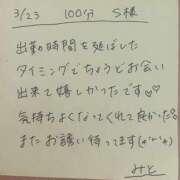 3/23 100分 S様
出勤時間を延ばした
タイミングでちょうどお会い
出来て嬉しかったです♡♡
気持ちよくなってくれて良かった。
またお誘い待ってます(*ˊᵕˋ*)
みと